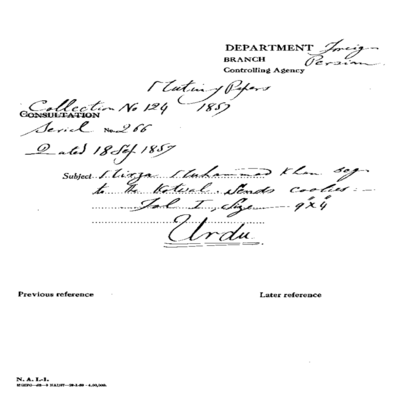 DEPARTMENT Foreign
BRANCH Persian
Controlling Agency
Mutiny Papers
Collection No 124 1857
CONSULTATION
Serial No. 266
Dated 18 Sep 1857
Subject Mirza Muhammad Khan
to the Kotwal. Sends coolies:-
Fol I, Size 9"x4"
Urdu
Previous reference Later reference
N. A. I.-1.